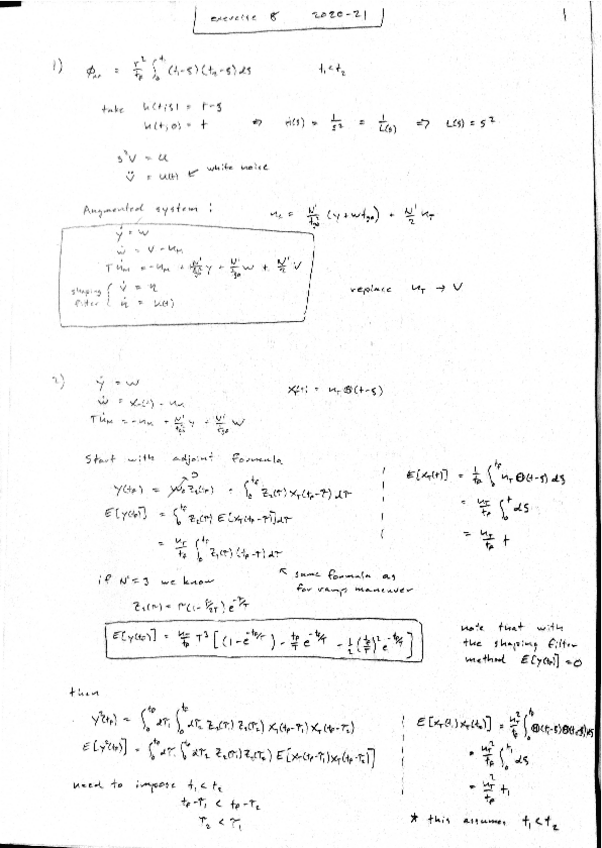 exercise 8 2020-21
1
1) φₙₙ = r²/t_F ∫₀^t₁ (t₁-ς)(t₂-ς)dς t₁<t₂
take h(t;ς) = t-ς
h(t;0) = t ⇒ H(s) = 1/s² = 1/L(s) ⇒ L(s) = s²
s²V = U
V̈ = u(t) ← white noise
Augmented system :
n_c = N'/t_go² (y + w t_go) + N'/2 n_T
ẏ = w
ẇ = V - n_M
T ṅ_M = -n_M + N'/t_go² y + N'/t_go w + N'/2 V
shaping filter { V̇ = η
η̇ = u(t)
replace n_T → V
2) ẏ = w
ẇ = x_T(t) - n_M
T ṅ_M = -n_M + N'/t_go² y + N'/t_go w
x_T(t) = n_T Θ(t-ς)
Start with adjoint formula
y(t_F) = y₀z₁(t_F) + ∫₀^t_F z₂(τ) x_T(t_F-τ) dτ
0
E[y(t_F)] = ∫₀^t_F z₂(τ) E[x_T(t_F-τ)] dτ
= n_T/t_F ∫₀^t_F z₂(τ) (t_F-τ) dτ
E[x_T(t)] = 1/t_F ∫₀^t_F n_T Θ(t-ς) dς
= n_T/t_F ∫₀^t dς
= n_T/t_F t
↖ same formula as
for ramp maneuver
if N'=3 we know
z₂(τ) = τ(1 - τ/2T) e^(-τ/T)
E[y(t_F)] = n_T/t_F T³ [(1-e^(-t_F/T)) - t_F/T e^(-t_F/T) - 1/2 (t_F/T)² e^(-t_F/T)]
note that with
the shaping filter
method E[y(t_F)] = 0
then
y²(t_F) = ∫₀^t_F dτ₁ ∫₀^t_F dτ₂ z₂(τ₁) z₂(τ₂) x_T(t_F-τ₁) x_T(t_F-τ₂)
E[y²(t_F)] = ∫₀^t_F dτ₁ ∫₀^t_F dτ₂ z₂(τ₁) z₂(τ₂) E[x_T(t_F-τ₁) x_T(t_F-τ₂)]
E[x_T(t₁) x_T(t₂)] = n_T²/t_F ∫₀^t_F Θ(t₁-ς) Θ(t₂-ς) dς
= n_T²/t_F ∫₀^t₁ dς
= n_T²/t_F t₁
need to impose t₁ < t₂
t_F-τ₁ < t_F-τ₂
τ₂ < τ₁
* this assumes t₁<t₂